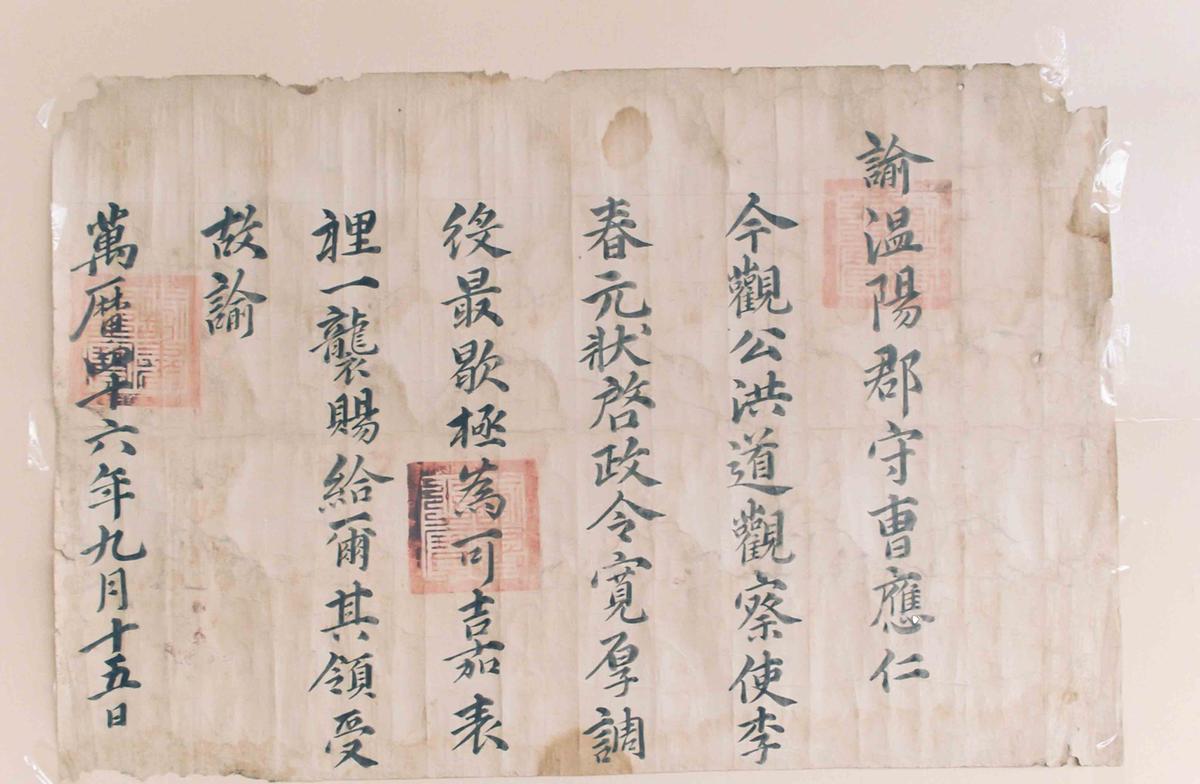 諭温陽郡守曺應仁
今觀公洪道觀察使李
春元狀啓政令寛厚調
役最歇極為可嘉表
裡一襲賜給爾其領受
故諭
萬曆四十六年九月十五日